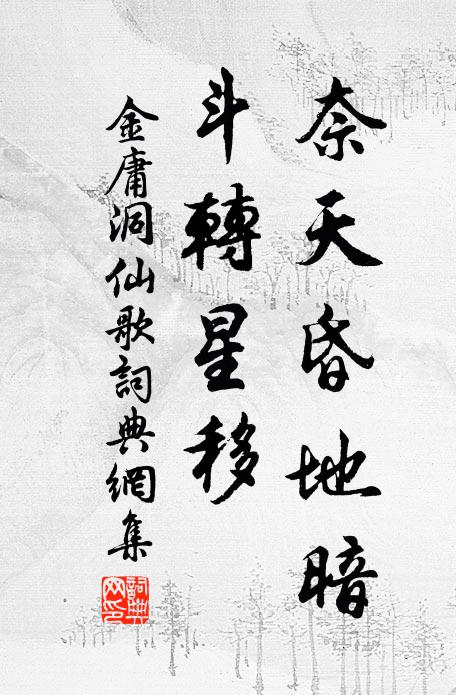 奈天昏地暗
斗轉星移
金庸洞仙歌詞典網集
詞典網印